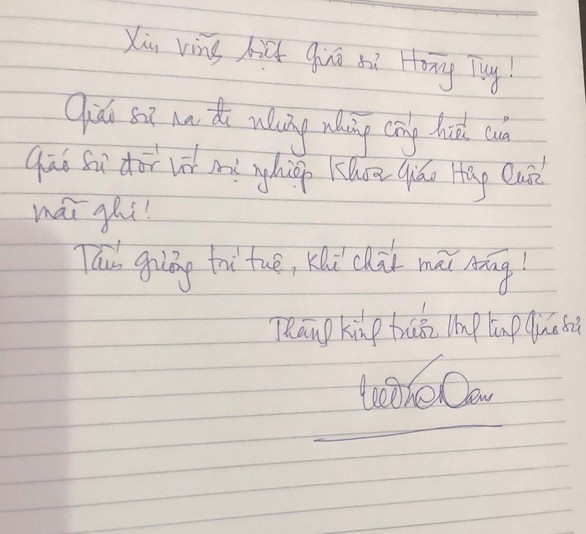 Xin vĩnh biệt Giáo sư Hoàng Tụy!
Giáo sư ra đi nhưng những cống hiến của
Giáo sư đối với sự nghiệp Khoa Giáo
mãi ghi!
Tấm gương trí tuệ, khí chất mãi sáng!
Thành kính trước Giáo sư